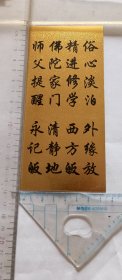 俗心淡泊 外缘放
精进修学 西方皈
佛陀家门 清静地
师父提醒 永记皈